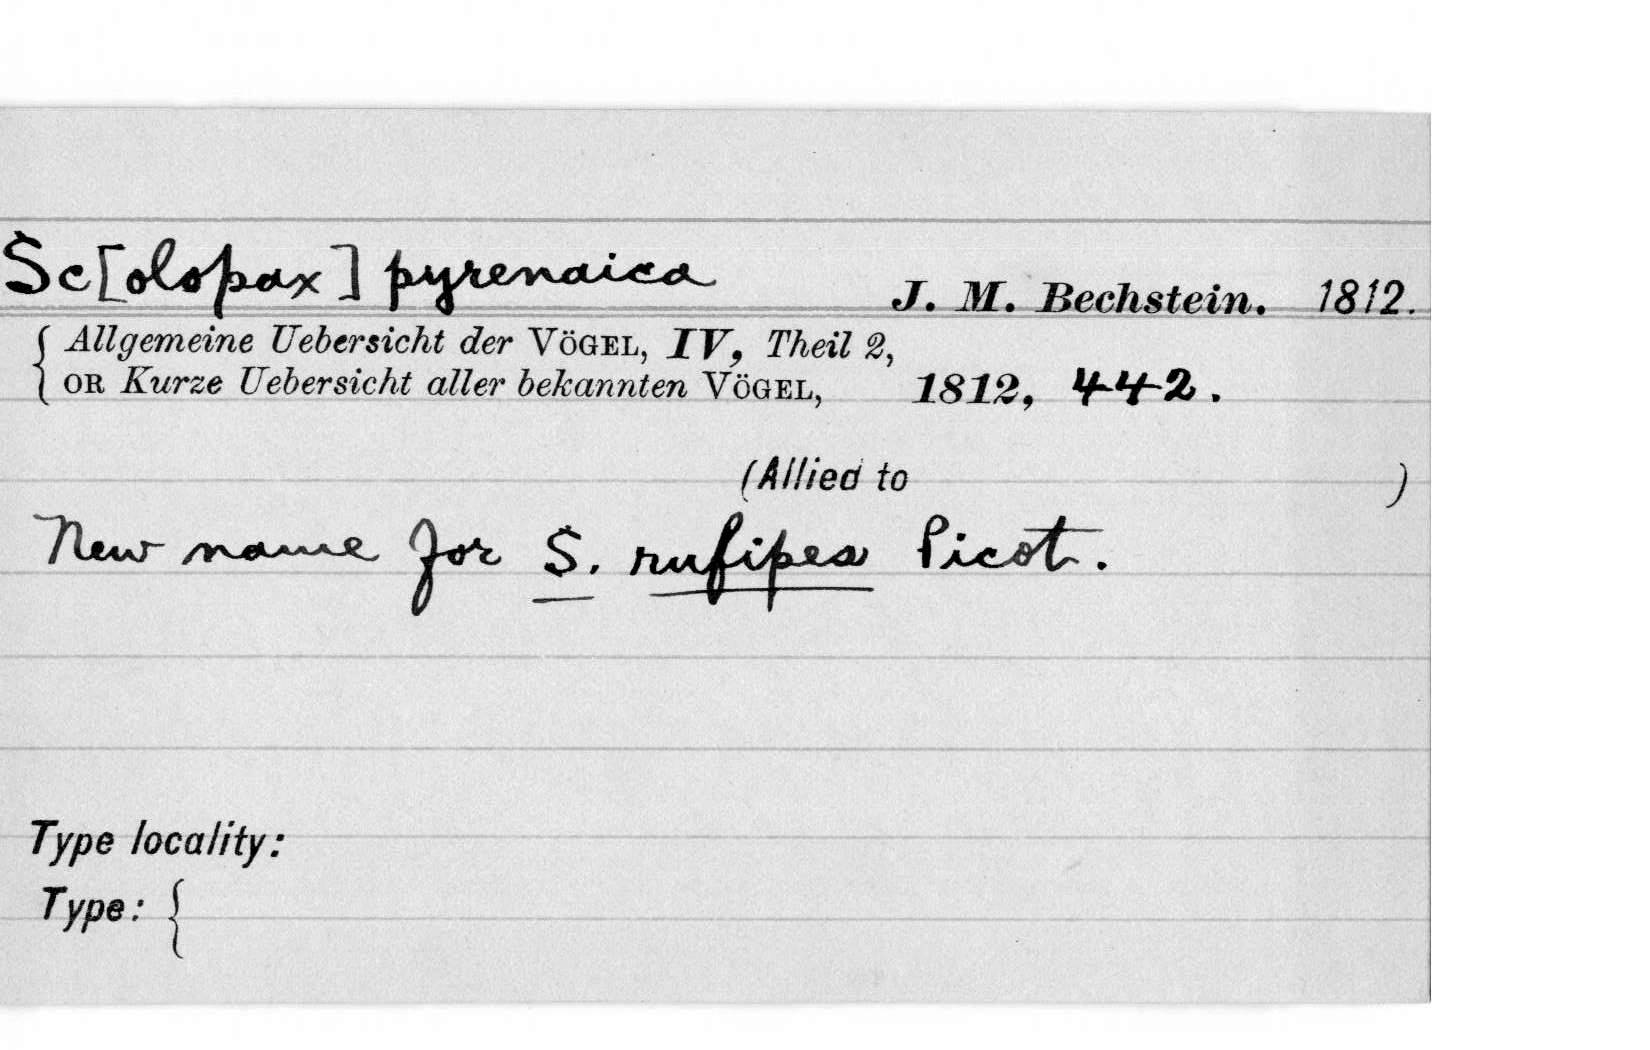 Sc[olopax] pyrenaica J. M. Bechstein. 1812.
{ Allgemeine Uebersicht der VÖGEL, IV, Theil 2,
OR Kurze Uebersicht aller bekannten VÖGEL, 1812, 442.
(Allied to )
New name for S. rufipes Picot.
Type locality:
Type: {